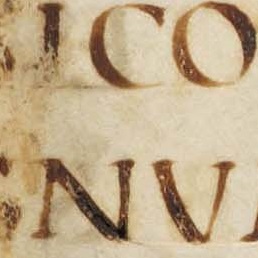 ICO
NV